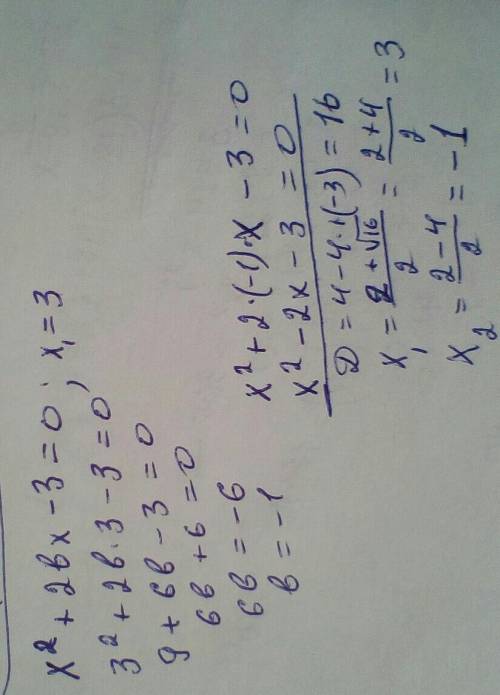 x² + 2bx - 3 = 0; x₁ = 3
3² + 2b·3 - 3 = 0
9 + 6b - 3 = 0
6b + 6 = 0
6b = -6
b = -1
x² + 2·(-1)·x - 3 = 0
x² - 2x - 3 = 0
D = 4 - 4·(-3) = 16
x₁ = (2 + √16)/2 = (2 + 4)/2 = 3
x₂ = (2 - 4)/2 = -1